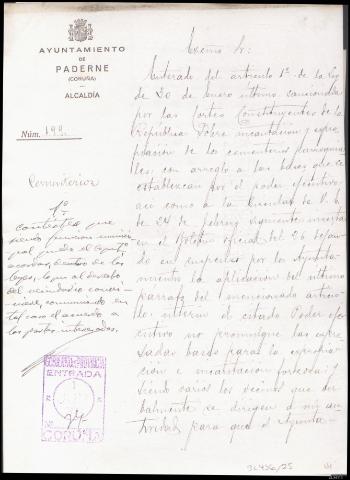 AYUNTAMIENTO
DE
PADERNE
(CORUÑA)
ALCALDÍA
Núm. 199.
Cementerios
1º
Contéstese que
siendo funcion munici
pal puede el Ayunto
acordar, dentro de las
leyes, lo que al derecho
del vecindario convi-
niese, comunicando en
tal caso el acuerdo a
las partes interesadas.
ENTRADA
1
Nº 24
CORUÑA
Excmo Sr:
Enterado del articulo 1º de la Ley
de 30 de Enero ultimo sancionada
por las Cortes Constituyentes de la
República sobre incautacion y expro-
piación de los cementerios parroquia-
les con arreglo a las bases que se
establezcan por el poder ejecutivo
asi como a la Circular de V. E.
de 24 de febrero siguiente inserta
en el Boletin oficial del 26 de
no empezar por los Ayunta-
mientos la aplicación del ultimo
parrafo del mencionado articu-
lo interin el citado Poder eje-
cutivo no promulgue las expre-
sadas bases para la expropia-
cion e incautacion forzosa; y
siendo varios los vecinos que ver-
balmente se dirigen a mi au-
toridad para que el Ayunta-
32436/25